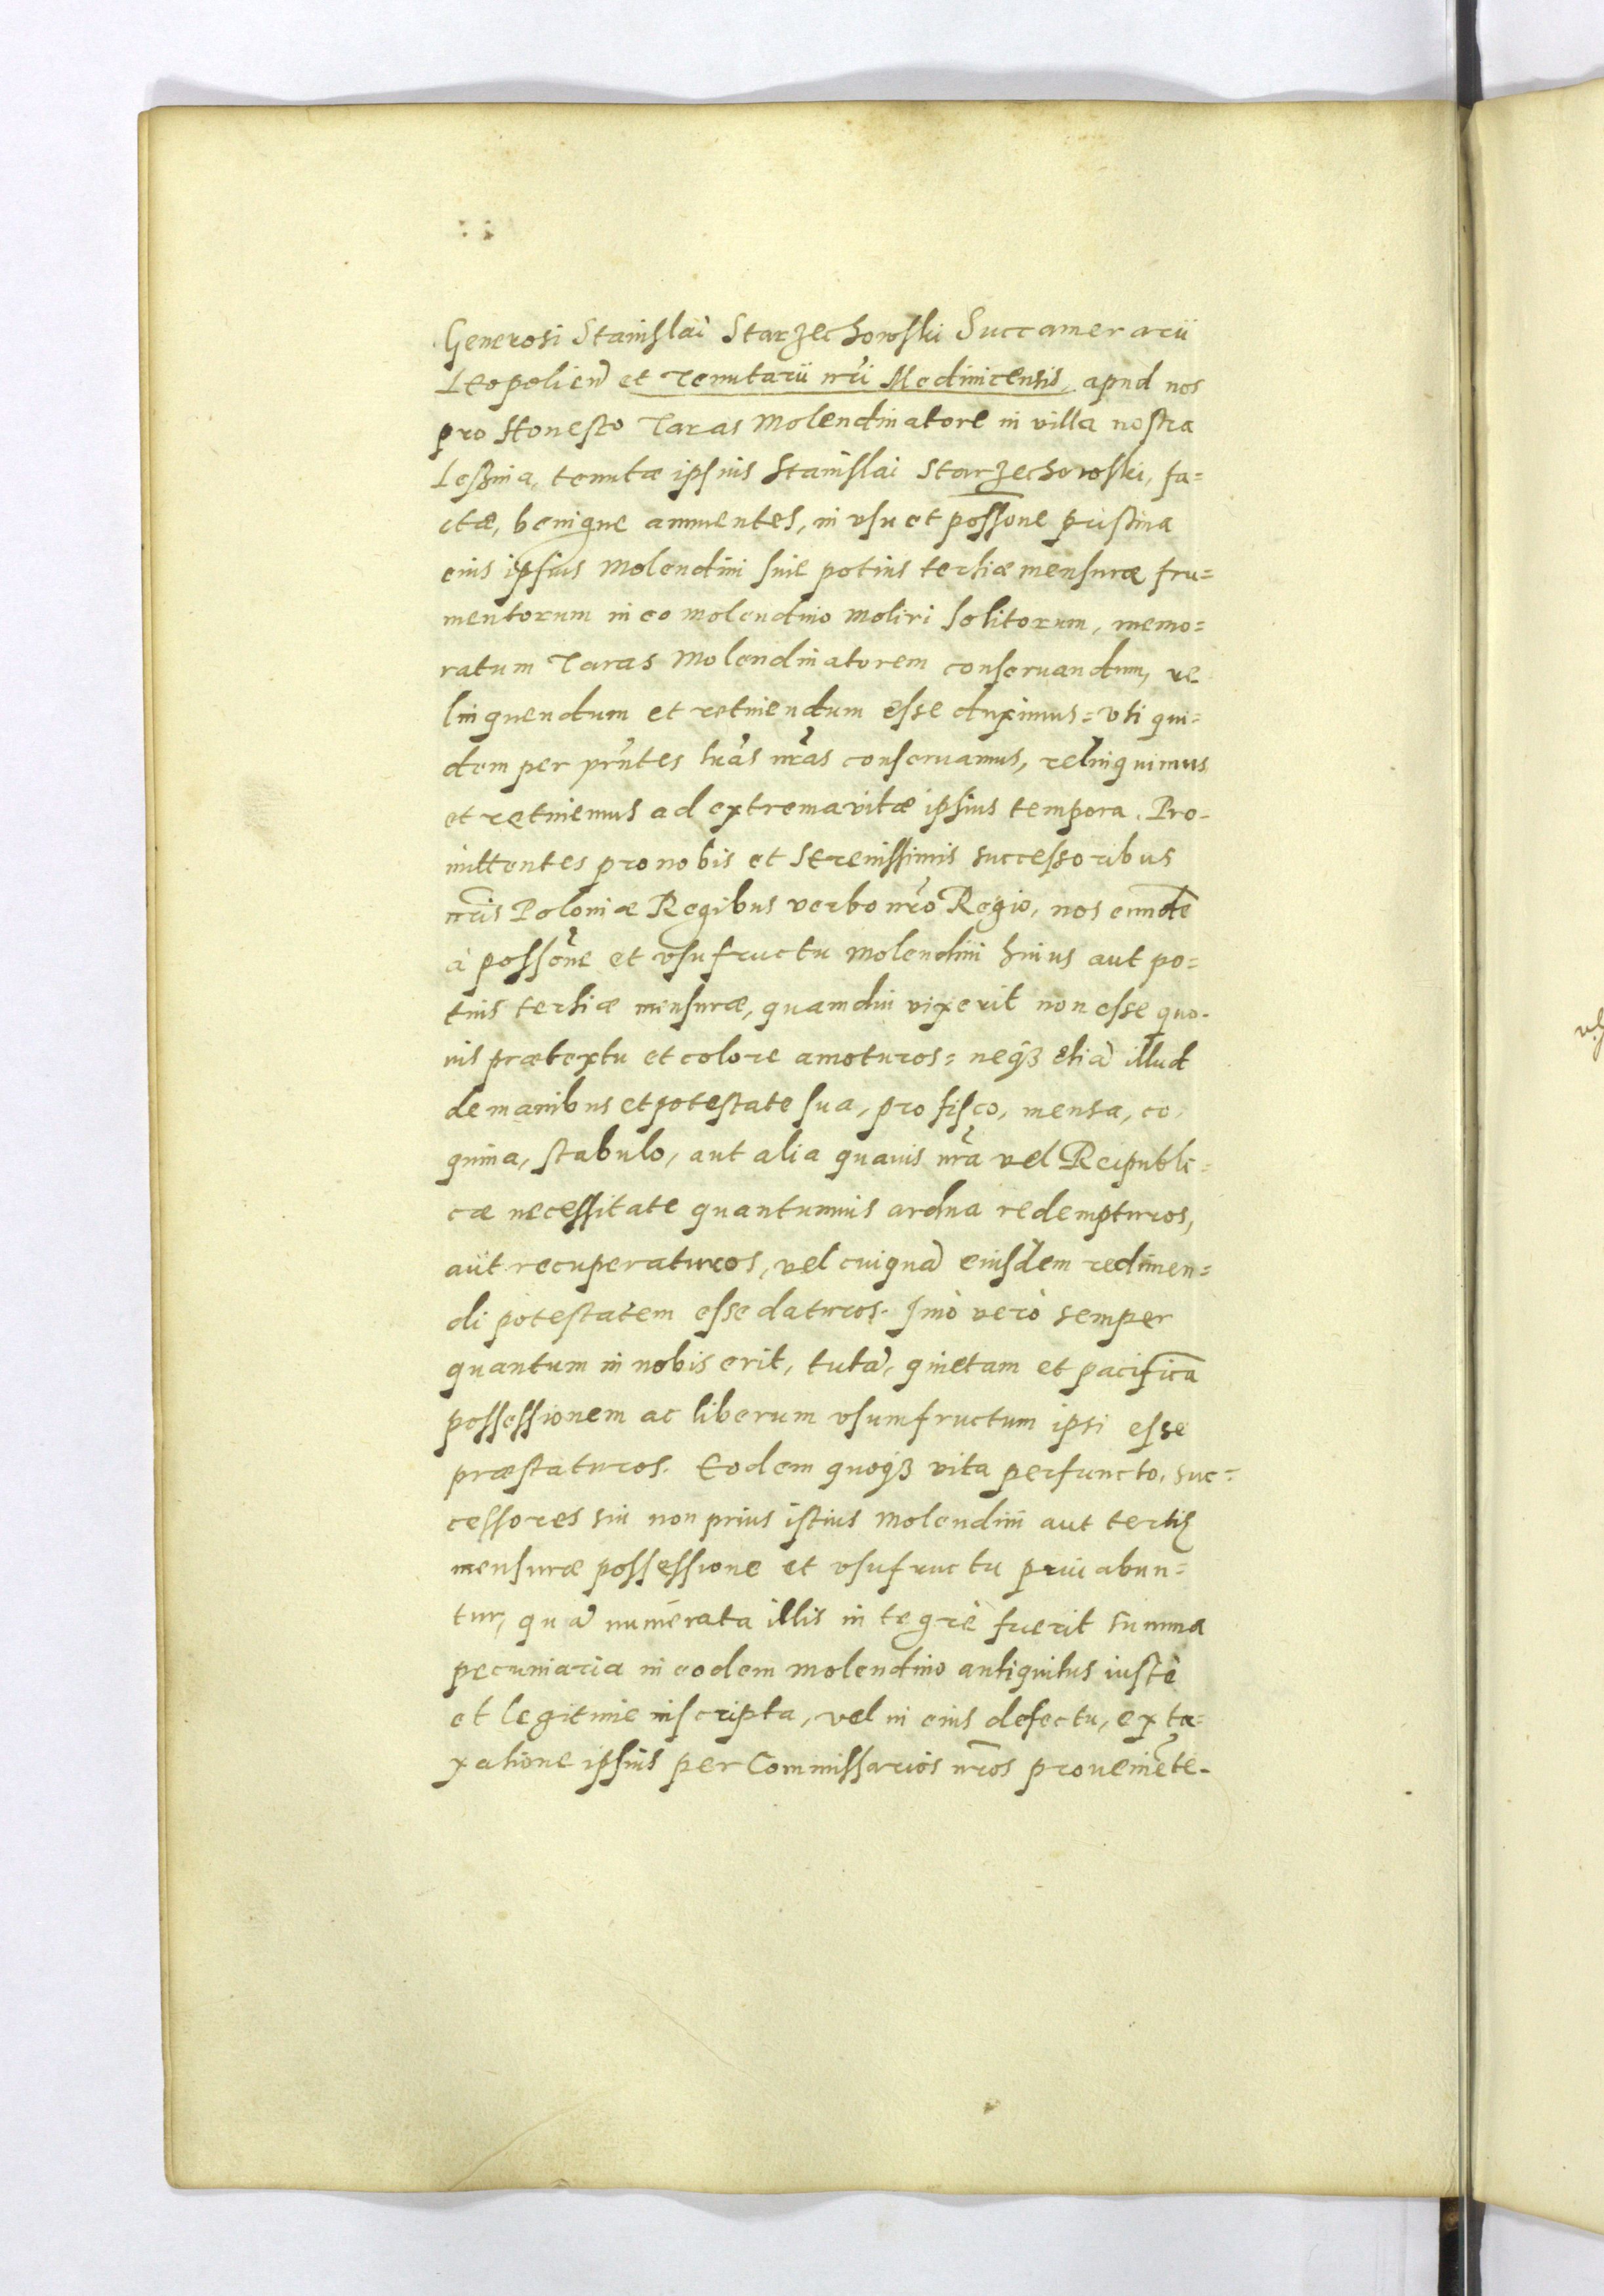 Generosi Stanislai Starzechowski Succamerarii
Leopolien̄ et Tenutarii nr̄i Medinicensis, apud nos
pro Honesto Taras Molendinatore in villa nostra
tenutæ ipsius Stanislai Starzechowski, fa=
ctæ, benigne annuentes, in vsu et possōne pristina
eius ipsius Molendini siue potius tertiæ mensuræ fru=
mentorum in eo molendino moliri solitorum, memo=
ratum Taras Molendinatorem conseruandum, re
linquendum et retinendum esse duximus= vti qui=
dem per pr̄ntes l̄ras nr̄as conseruamus, relinquimus
et retinemus ad extrema vitæ ipsius tempora. Pro-
mittentes pro nobis et Serenissimis successoribus
nr̄is Poloniæ Regibus verbo nr̄o Regio, nos eundē
à possōne et vsufructu Molendini huius aut po=
tius tertiæ mensuræ, quamdiu vixerit non esse quo-
uis prætextu et colore amoturos= neqꝫ etiā illud
de manibus et potestate sua, pro fisco, mensa, co
quina, stabulo, aut alia quauis nr̄a vel Reipubli=
cæ necessitate quantumuis ardua redempturos,
aut recuperaturos, vel cuiquā eiusdem redimen=
di potestatem esse daturos. Imò verò semper
quantum in nobis erit, tutā, quietam et pacificā
possessionem ac liberum vsumfructum ipsi esse
præstaturos. Eodem quoqꝫ vita perfuncto, suc=
cessores sui non prius istius Molendini aut tertię
mensuræ possessione et vsufructu priuabun=
tur, quā numerata illis integrè fuerit summa
pecuniaria in eodem molendino antiquitus iustè
et legitimè inscripta, vel in eius defectu, ex ta=
xatione ipsius per Commissarios nr̄os proueniēte-